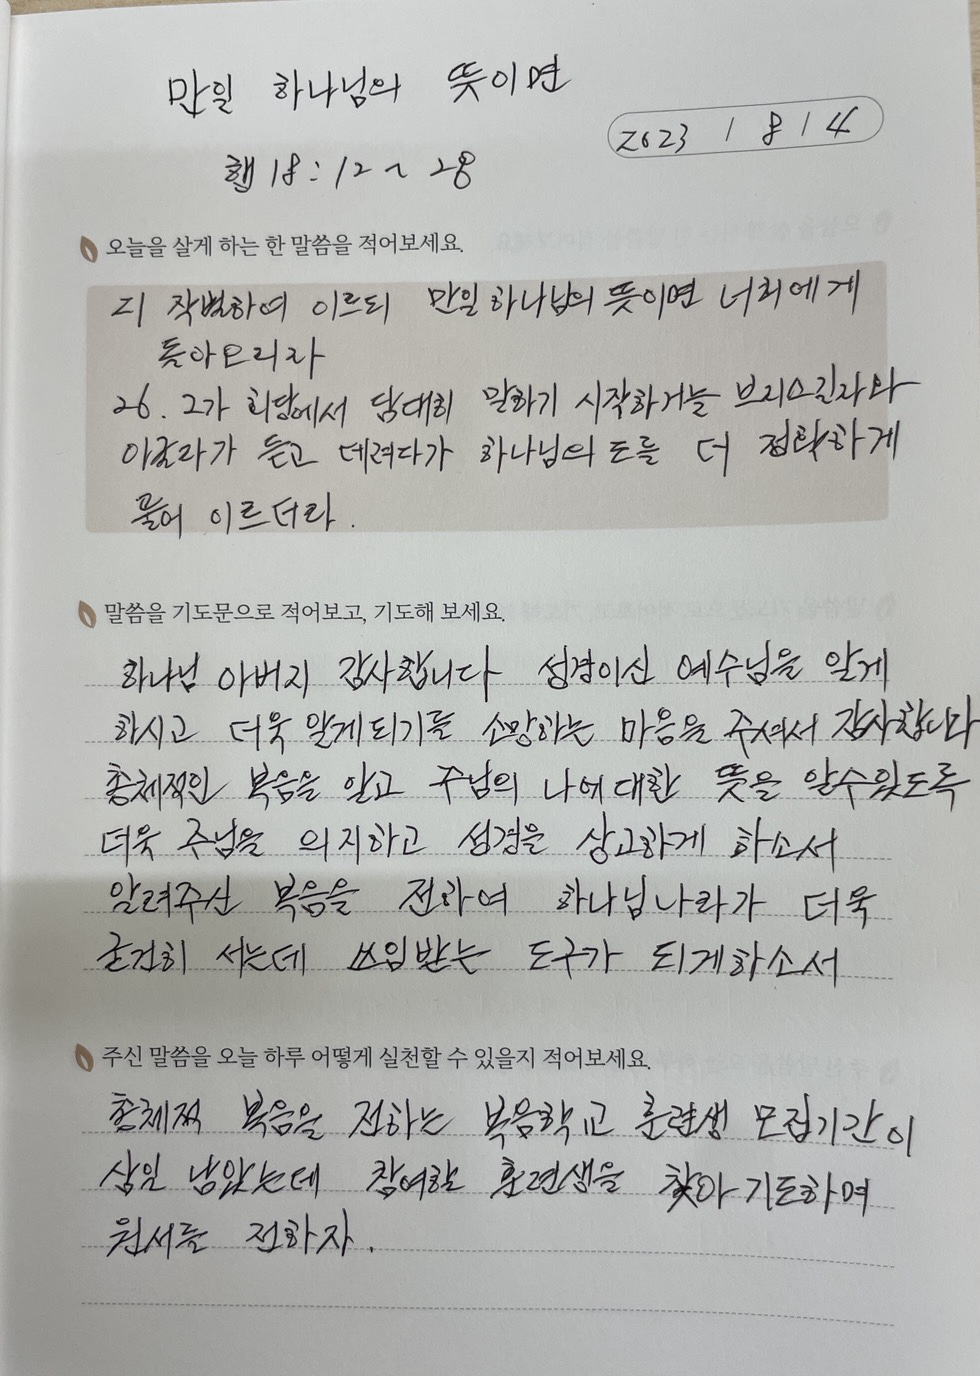 만일 하나님의 뜻이면
2023 / 8 / 4
행 18:12~28
오늘을 살게 하는 한 말씀을 적어보세요.
21 작별하여 이르되 만일 하나님의 뜻이면 너희에게
돌아오리라
26. 그가 회당에서 담대히 말하기 시작하거늘 브리스길라와
아굴라가 듣고 데려다가 하나님의 도를 더 정확하게
풀어 이르더라.
말씀을 기도문으로 적어보고, 기도해 보세요.
하나님 아버지 감사합니다 성경이신 예수님을 알게
하시고 더욱 알게되기를 소망하는 마음을 주셔서 감사합니다
총체적인 복음을 알고 주님의 나에대한 뜻을 알수있도록
더욱 주님을 의지하고 성경을 상고하게 하소서
알려주신 복음을 전하여 하나님나라가 더욱
굳건히 서는데 쓰임받는 도구가 되게하소서
주신 말씀을 오늘 하루 어떻게 실천할 수 있을지 적어보세요.
총체적 복음을 전하는 복음학교 훈련생 모집기간이
삼일 남았는데 참여할 훈련생을 찾아 기도하며
원서를 전하자.